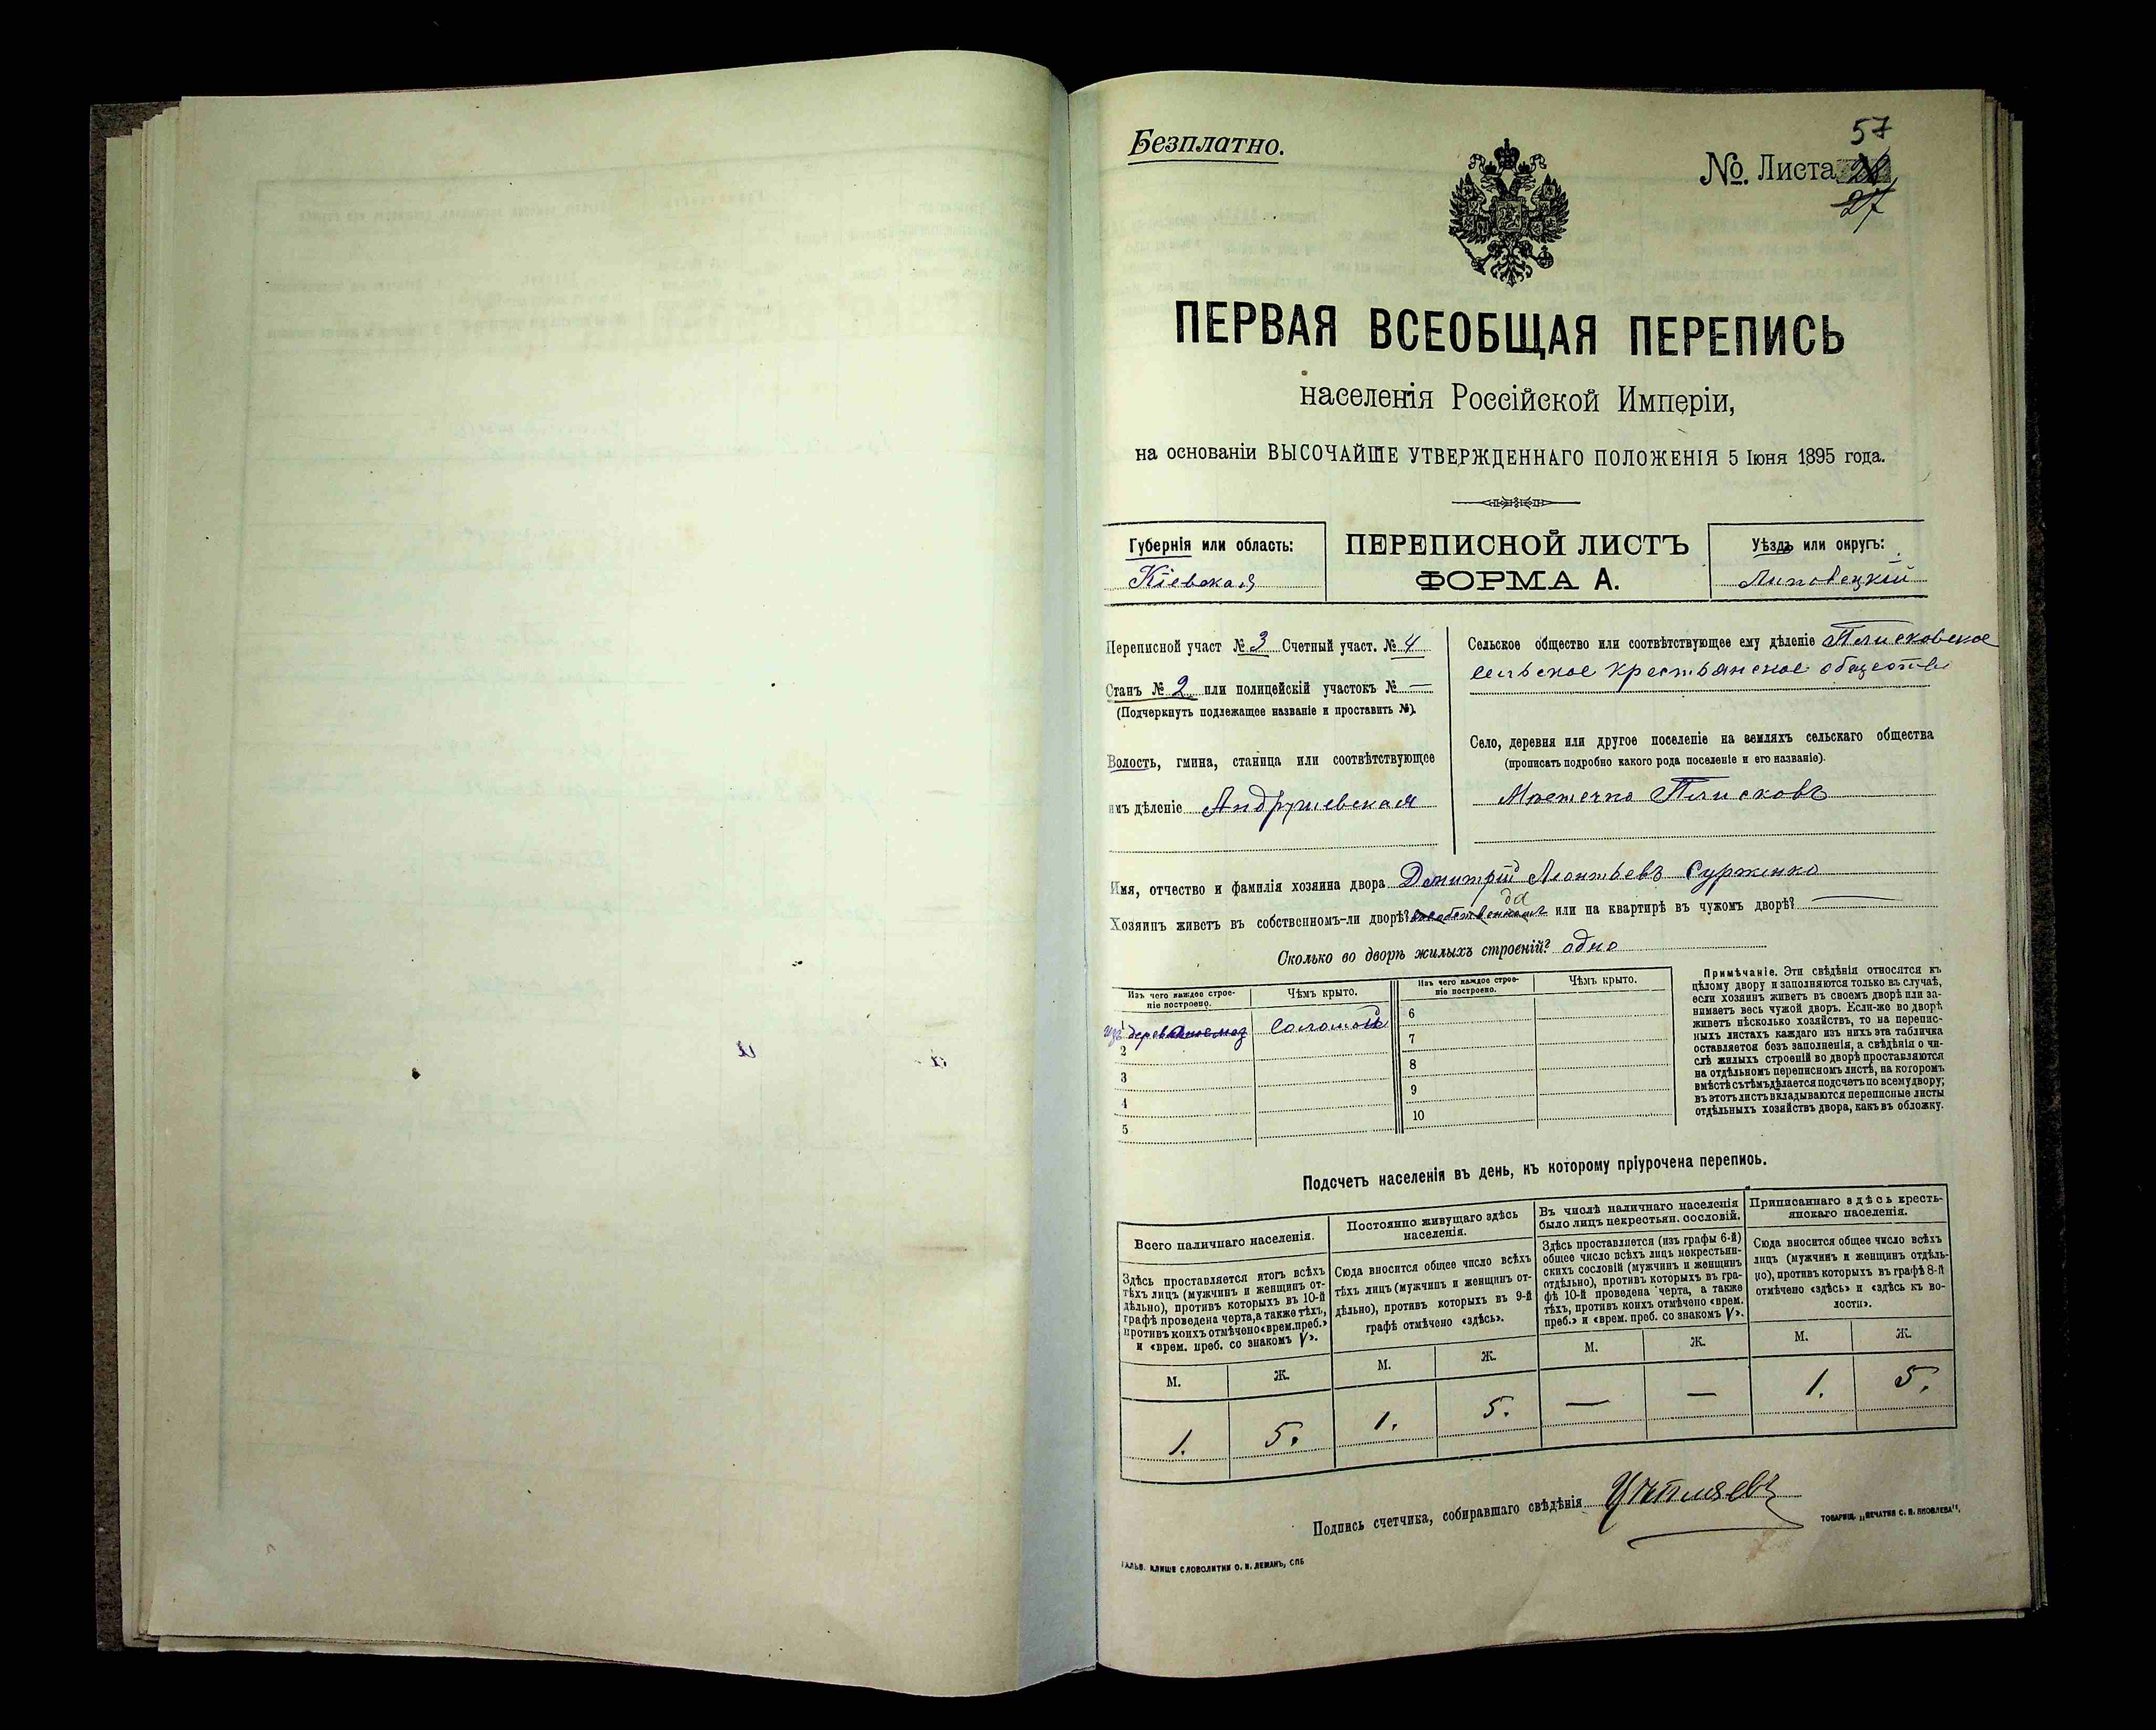 Безплатно.
57
№ Листа 28
27
ПЕРВАЯ ВСЕОБЩАЯ ПЕРЕПИСЬ
населенія Россійской Имперіи,
на основаніи ВЫСОЧАЙШЕ УТВЕРЖДЕННАГО ПОЛОЖЕНІЯ 5 Іюня 1895 года.
Губернія или область:
Кіевская
ПЕРЕПИСНОЙ ЛИСТЪ
ФОРМА А.
Уѣздъ или округъ:
Липовецкій
Переписной участ № 3 Счетный участ. № 4
Станъ № 2 или полицейскій участокъ № —
(Подчеркнуть подлежащее названіе и проставить №).
Волость, гмина, станица или соотвѣтствующее
имъ дѣленіе Андрушевская
Сельское общество или соотвѣтствующее ему дѣленіе Плисковское
сельское крестьянское общество
Село, деревня или другое поселеніе на земляхъ сельскаго общества
(прописать подробно какого рода поселеніе и его названіе).
Мѣстечко Плисковъ
Имя, отчество и фамилія хозяина двора Дмитрій Леонтьевъ Сурженко
Хозяинъ живетъ въ собственномъ-ли дворѣ? да или на квартирѣ въ чужомъ дворѣ? —
Сколько во дворѣ жилыхъ строеній? одно
Изъ чего каждое строе-
ніе построено.
Чѣмъ крыто.
Изъ чего каждое строе-
ніе построено.
Чѣмъ крыто.
1 изъ дерева соломой
2
3
4
5
6
7
8
9
10
Примѣчаніе. Эти свѣдѣнія относятся къ
цѣлому двору и заполняются только въ случаѣ,
если хозяинъ живетъ въ своемъ дворѣ или за-
нимаетъ весь чужой дворъ. Если-же во дворѣ
живетъ нѣсколько хозяйствъ, то на перепис-
ныхъ листахъ каждаго изъ нихъ эта табличка
оставляется безъ заполненія, а свѣдѣнія о чи-
слѣ жилыхъ строеній во дворѣ проставляются
на отдѣльномъ переписномъ листѣ, на которомъ
вмѣстѣ съ тѣмъ дѣлается подсчетъ по всему двору;
въ этотъ листъ вкладываются переписные листы
отдѣльныхъ хозяйствъ двора, какъ въ обложку.
Подсчетъ населенія въ день, къ которому пріурочена перепись.
Всего наличнаго населенія.
Здѣсь проставляется итогъ всѣхъ
тѣхъ лицъ (мужчинъ и женщинъ от-
дѣльно), противъ которыхъ въ 10-й
графѣ проведена черта, а также тѣхъ,
противъ коихъ отмѣчено «врем. преб.»
и «врем. преб. со знакомъ V».
М. Ж.
1. 5.
Постоянно живущаго здѣсь
населенія.
Сюда вносится общее число всѣхъ
тѣхъ лицъ (мужчинъ и женщинъ от-
дѣльно), противъ которыхъ въ 9-й
графѣ отмѣчено «здѣсь».
М. Ж.
1. 5.
Въ числѣ наличнаго населенія
было лицъ некрестьян. сословій.
Здѣсь проставляется (изъ графы 6-й)
общее число всѣхъ лицъ некрестьян-
скихъ сословій (мужчинъ и женщинъ
отдѣльно), противъ которыхъ въ гра-
фѣ 10-й проведена черта, а также
тѣхъ, противъ коихъ отмѣчено «врем.
преб.» и «врем. преб. со знакомъ V».
М. Ж.
— —
Приписаннаго здѣсь кресть-
янскаго населенія.
Сюда вносится общее число всѣхъ
лицъ (мужчинъ и женщинъ отдѣль-
но), противъ которыхъ въ графѣ 8-й
отмѣчено «здѣсь» и «здѣсь къ во-
лости».
М. Ж.
1. 5.
Подпись счетчика, собиравшаго свѣдѣнія
ТОВАРИЩ. „ПЕЧАТНЯ С. П. ЯКОВЛЕВА".
ГАЛЬВ. КЛИШЕ СЛОВОЛИТНИ О. И. ЛЕМАНЪ, СПБ